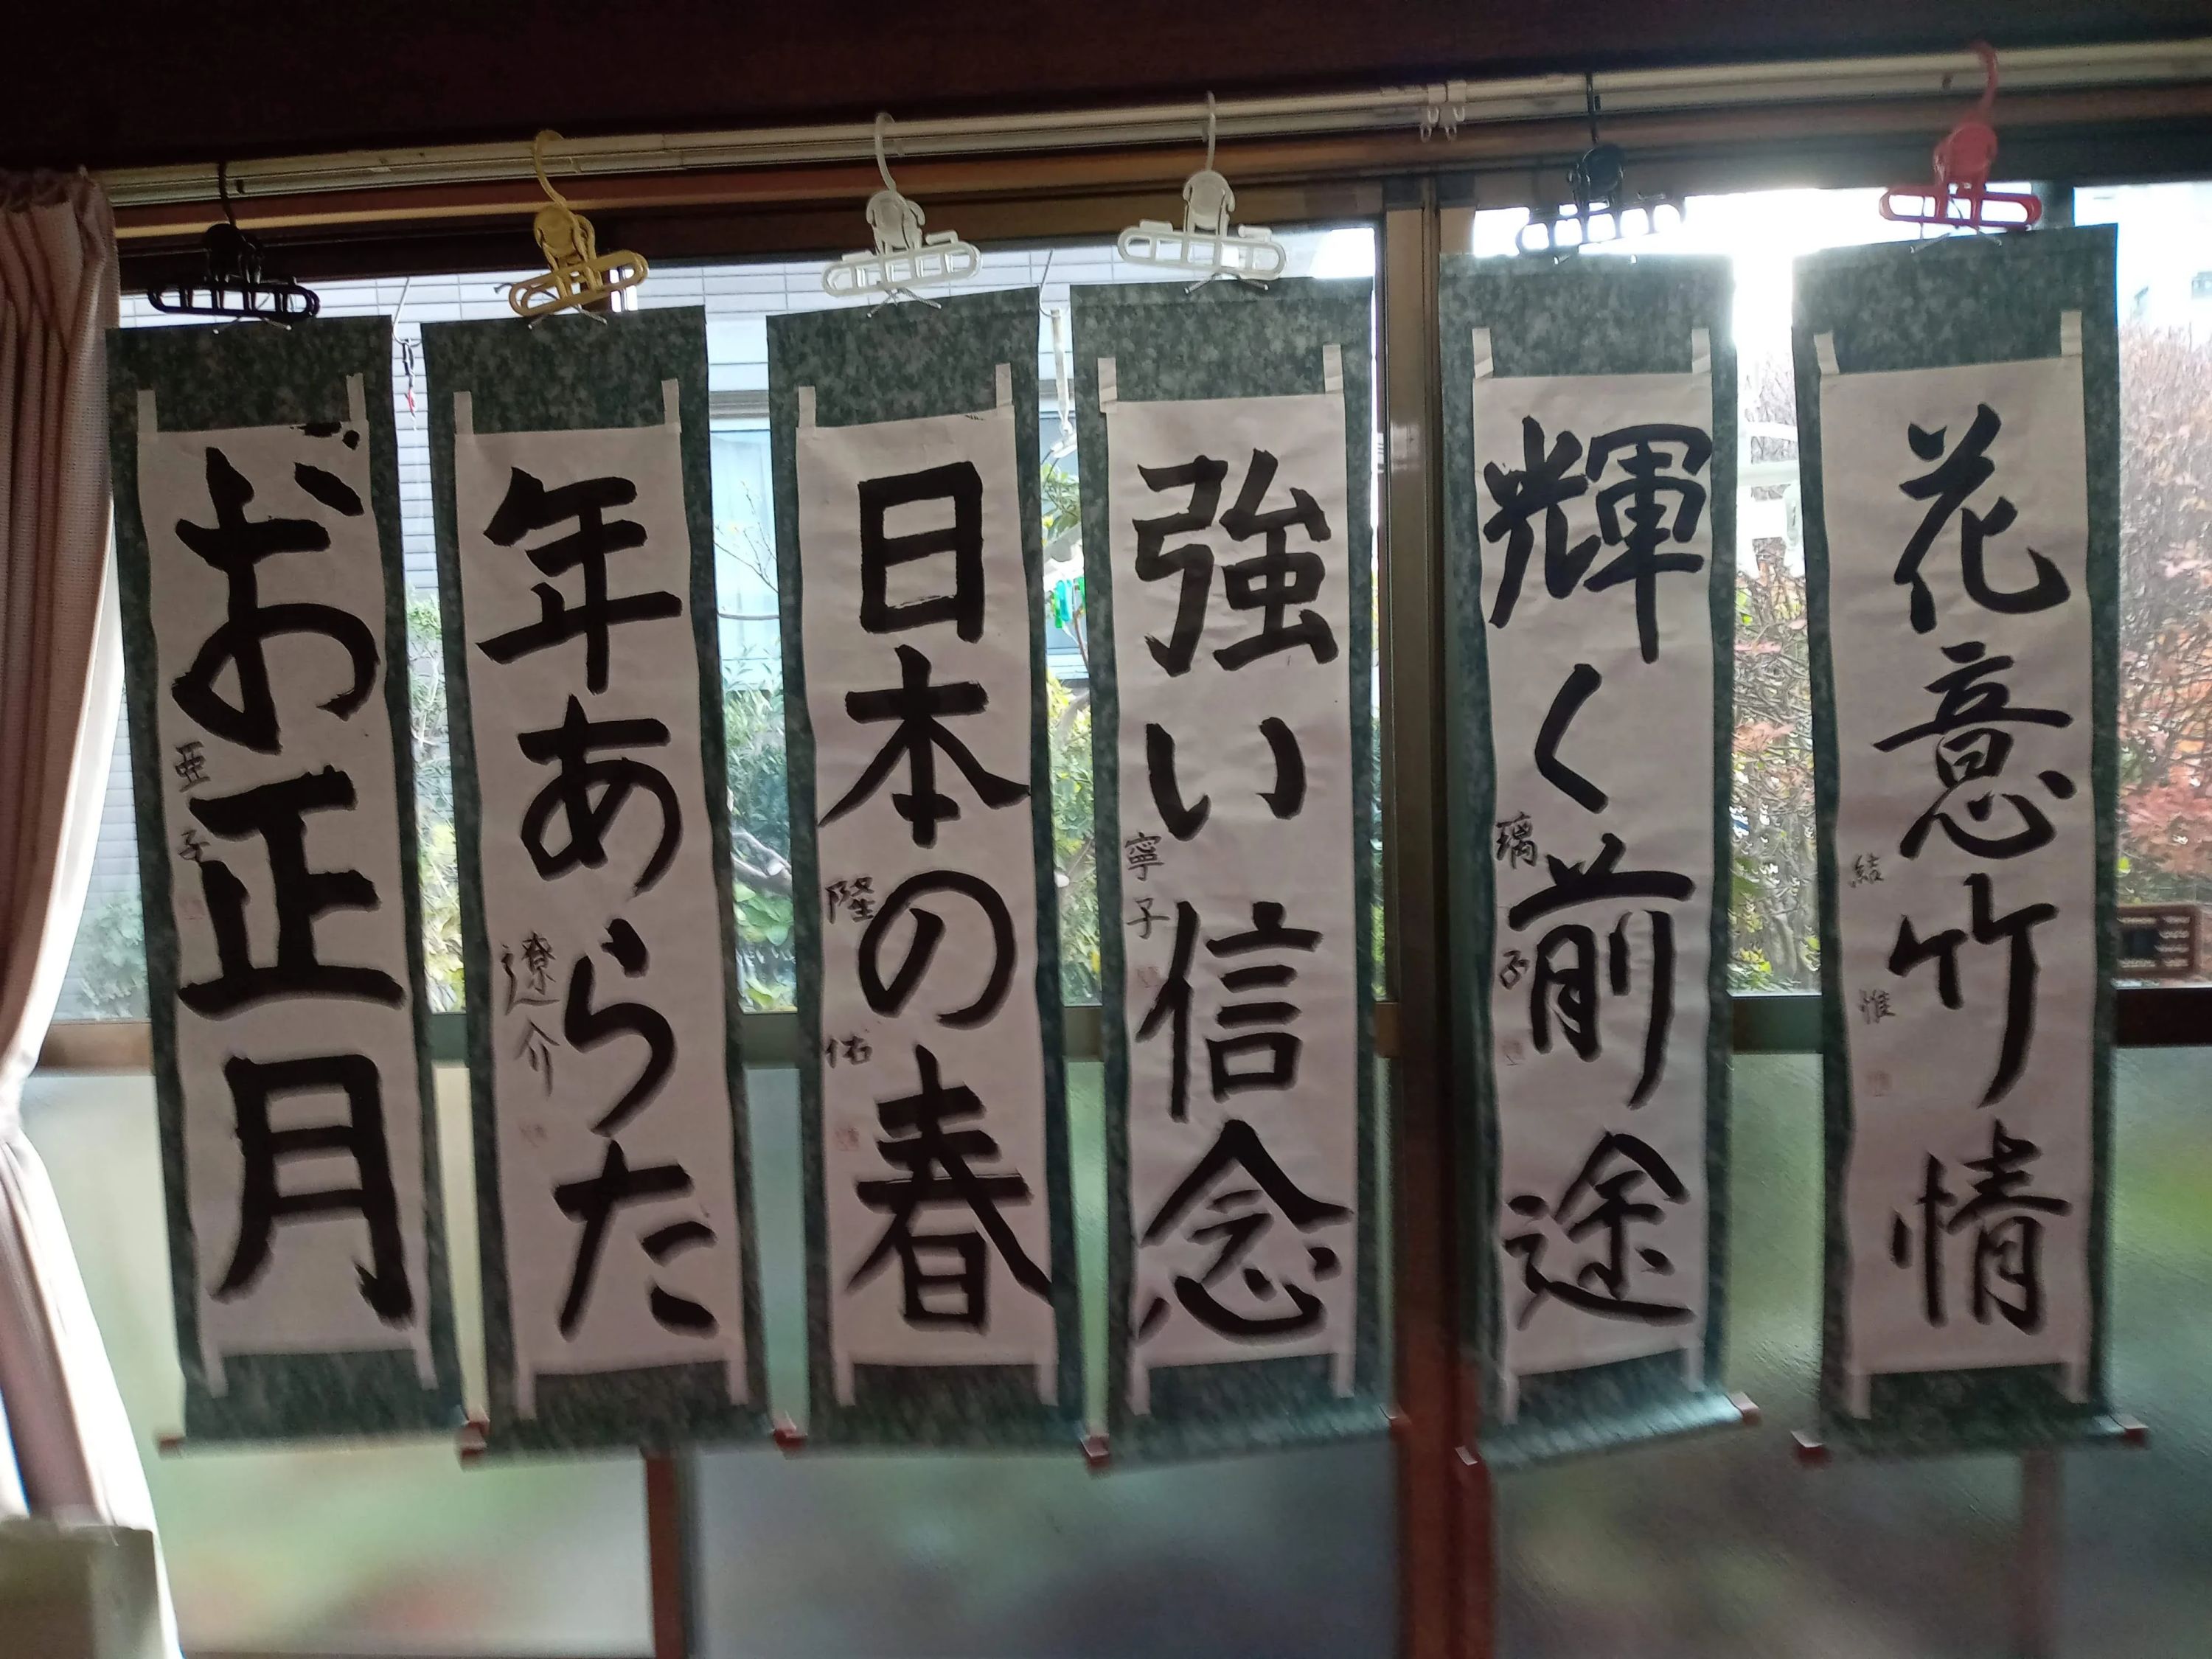 お正月
亜子
年あらた
遼介
日本の春
隆佑
強い信念
寧子
輝く前途
璃子
花意竹情
結惟